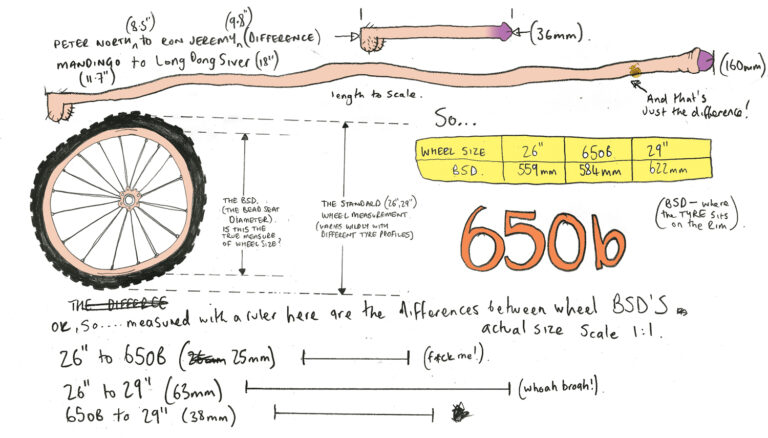 (8.5") (9.8")
PETER NORTH, to RON JEREMY, (DIFFERENCE)
(36mm).
MANDINGO to Long Dong Silver (18")
(11.7")
(160mm)
length to scale.
And that's
Just the difference!
So...
WHEEL SIZE 26" 650B 29"
BSD. 559mm 584mm 622mm
THE BSD.
(THE BEAD SEAT
DIAMETER).
IS THIS THE
TRUE MEASURE
OF WHEEL SIZE?
THE STANDARD (26", 29")
WHEEL MEASUREMENT.
(VARIES WILDLY WITH
DIFFERENT TYRE PROFILES)
(BSD – where
the TYRE SITS
on the Rim)
650b
THE DIFFERCE
OK, So.... measured with a ruler here are the differences between wheel BSD'S
actual size Scale 1:1.
26" to 650B (26mm 25mm) (f*ck me!).
26" to 29" (63mm) (whoah brogh!)
650B to 29" (38mm)